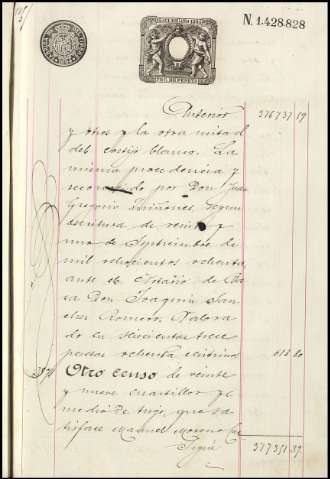 N. 1.428.828
Anterior 376737 59
y otros y la otra mitad
del cortijo blanco. La
misma procedencia y
reconocido por Don Juan
Gregorio Quiñones, segun
escritura de veinte y
uno de Septiembre de
mil ochocientos ochenta,
ante el Notario de
Don Joaquin San
chez Romero. Valora
do en seiscientas trece
pesetas ochenta centimos 613 80
Otro censo de veinte
y nueve cuartillos y
medio de trigo, que sa
tisface Manuel Moreno
377351 39